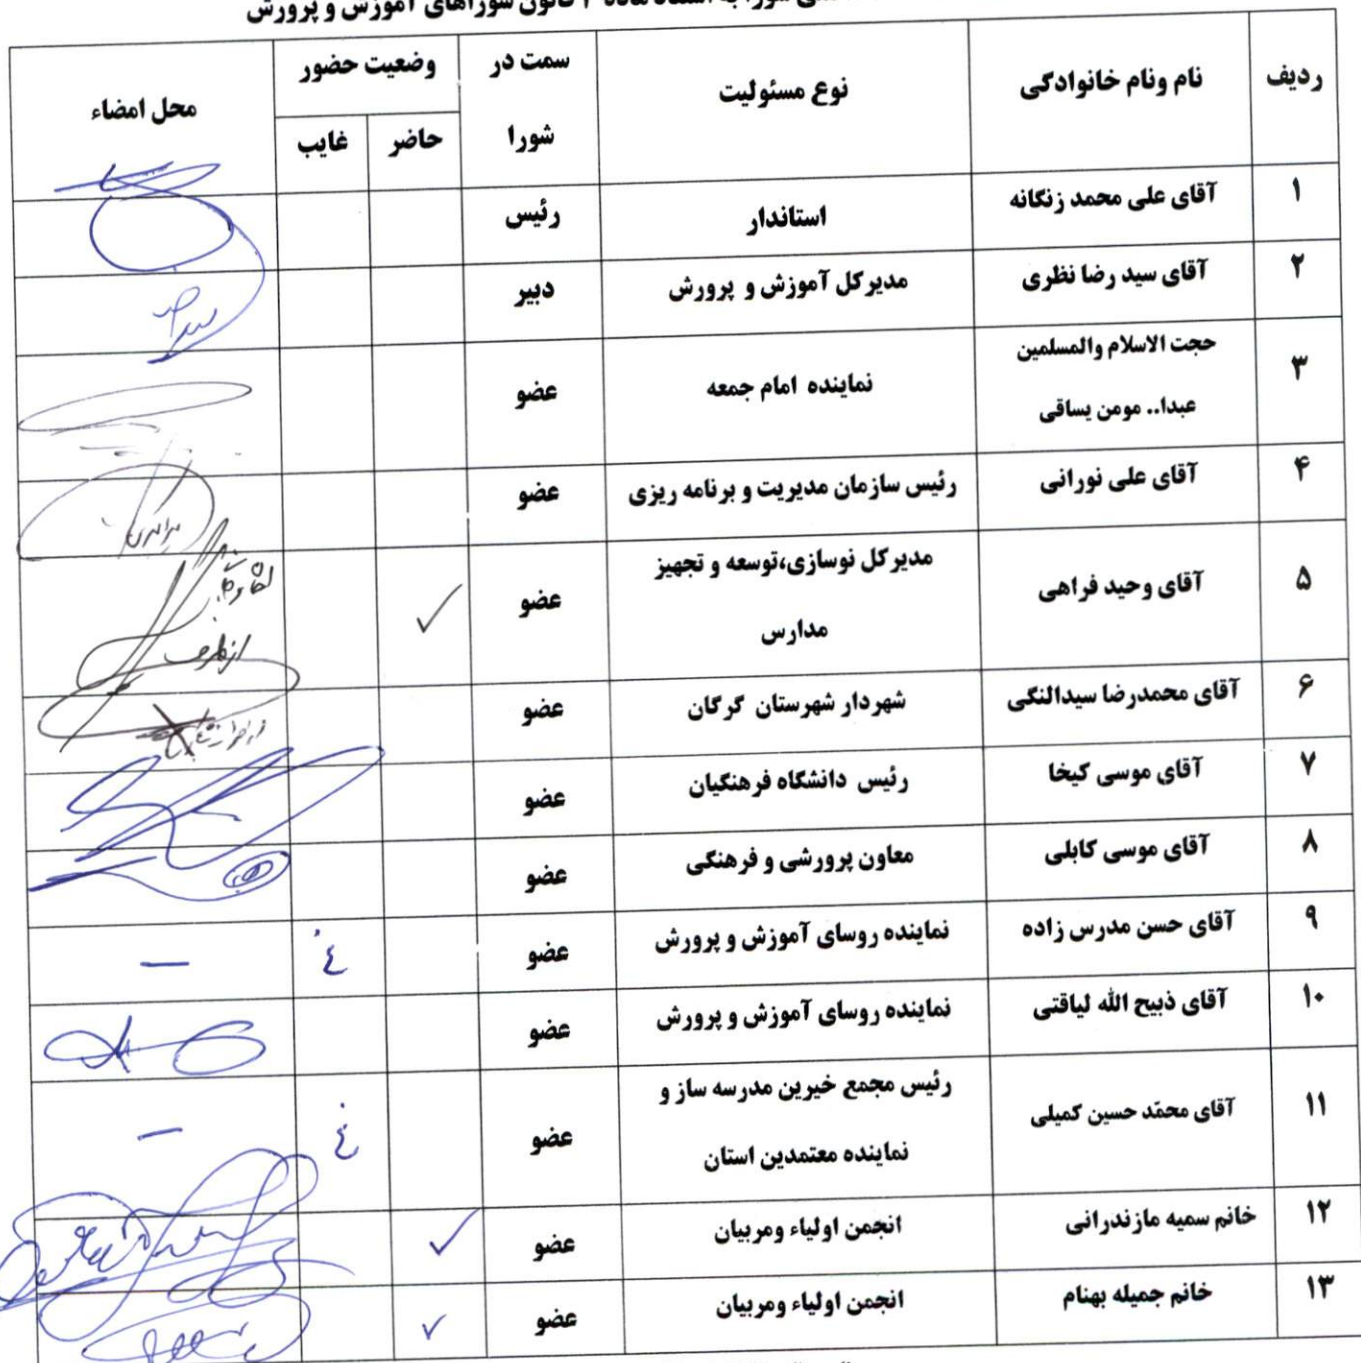 شورا به استناد ماده ۲ قانون شوراهای آموزش و پرورش
ردیف نام ونام خانوادگی نوع مسئولیت سمت در شورا وضعیت حضور محل امضاء
حاضر غایب
۱ آقای علی محمد زنگانه استاندار رئیس
۲ آقای سید رضا نظری مدیرکل آموزش و پرورش دبیر
۳ حجت الاسلام والمسلمین
عبدا.. مومن یساقی نماینده امام جمعه عضو
۴ آقای علی نورانی رئیس سازمان مدیریت و برنامه ریزی عضو
۵ آقای وحید فراهی مدیرکل نوسازی،توسعه و تجهیز
مدارس عضو ✓
۶ آقای محمدرضا سیدالنگی شهردار شهرستان گرگان عضو
۷ آقای موسی کیخا رئیس دانشگاه فرهنگیان عضو
۸ آقای موسی کابلی معاون پرورشی و فرهنگی عضو
۹ آقای حسن مدرس زاده نماینده روسای آموزش و پرورش عضو غ —
۱۰ آقای ذبیح الله لیاقتی نماینده روسای آموزش و پرورش عضو
۱۱ آقای محمّد حسین کمیلی رئیس مجمع خیرین مدرسه ساز و
نماینده معتمدین استان عضو غ —
۱۲ خانم سمیه مازندرانی انجمن اولیاء ومربیان عضو ✓
۱۳ خانم جمیله بهنام انجمن اولیاء ومربیان عضو ✓